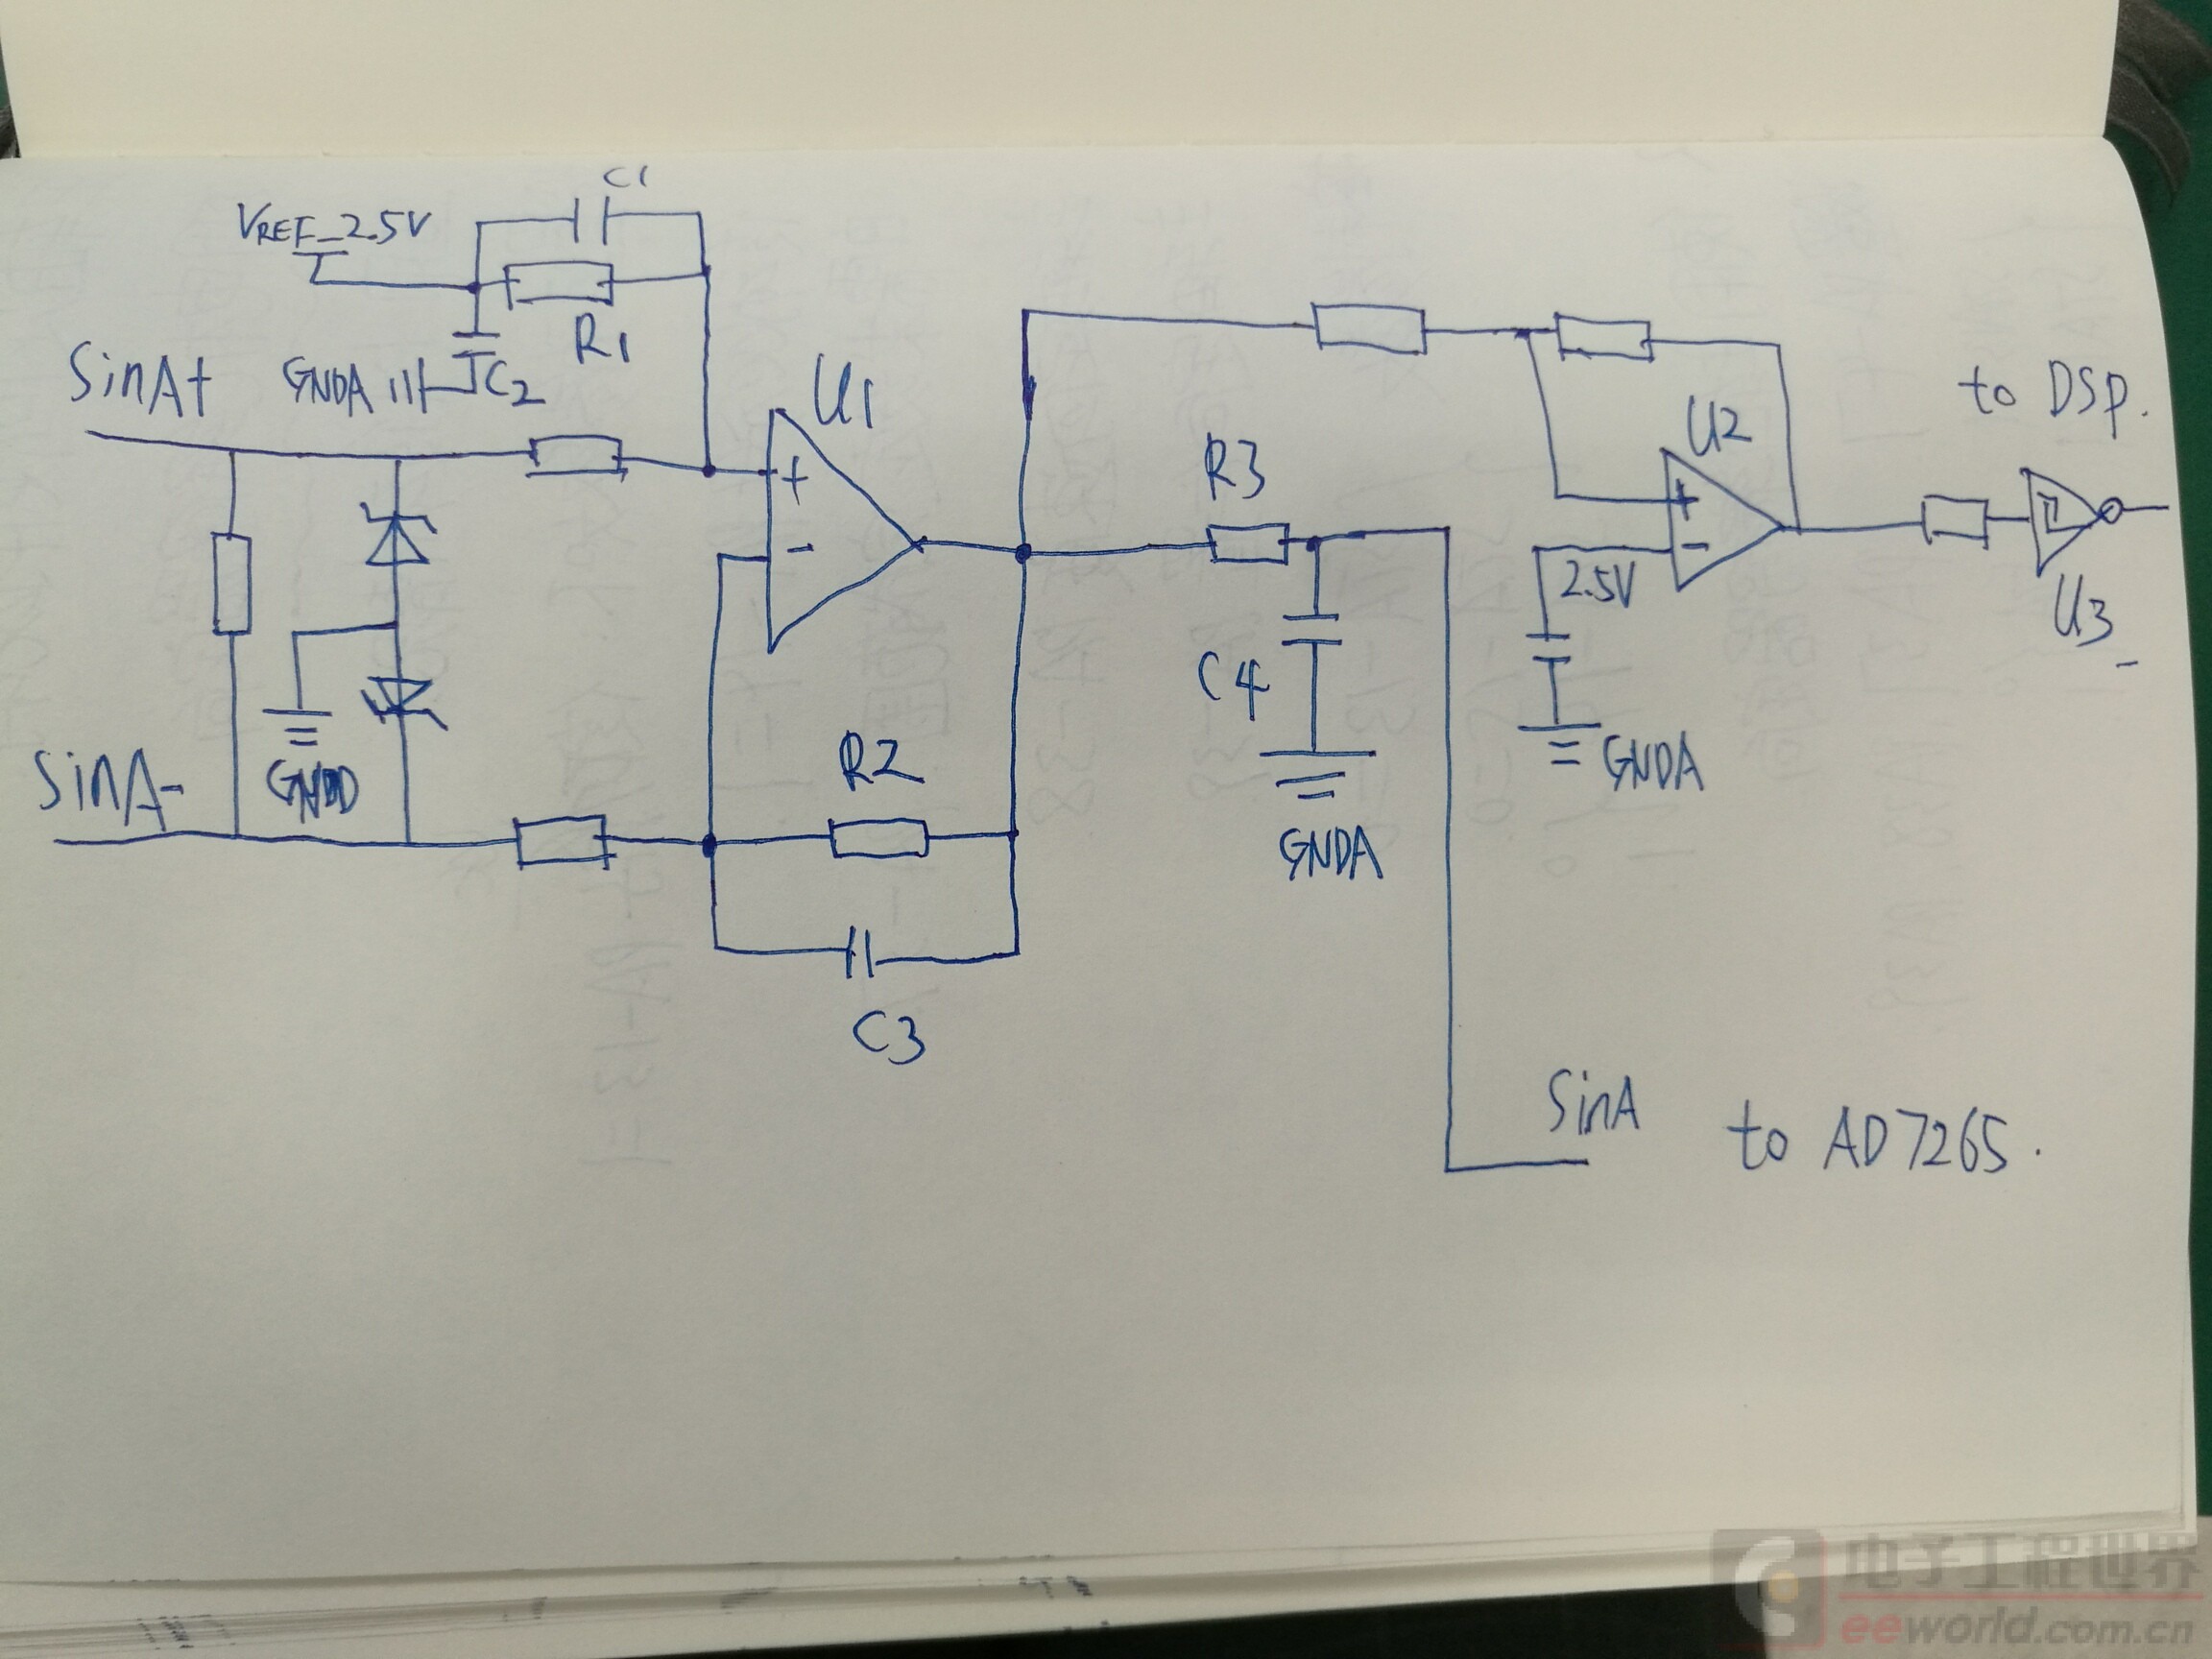 C1
VREF_2.5V
R1
SinA+
GNDA
C2
U1
to DSP.
U2
R3
2.5V
U3
C4
GNDA
SinA-
GNDD
R2
GNDA
C3
SinA
to AD7265.
电子工程世界
eeworld.com.cn